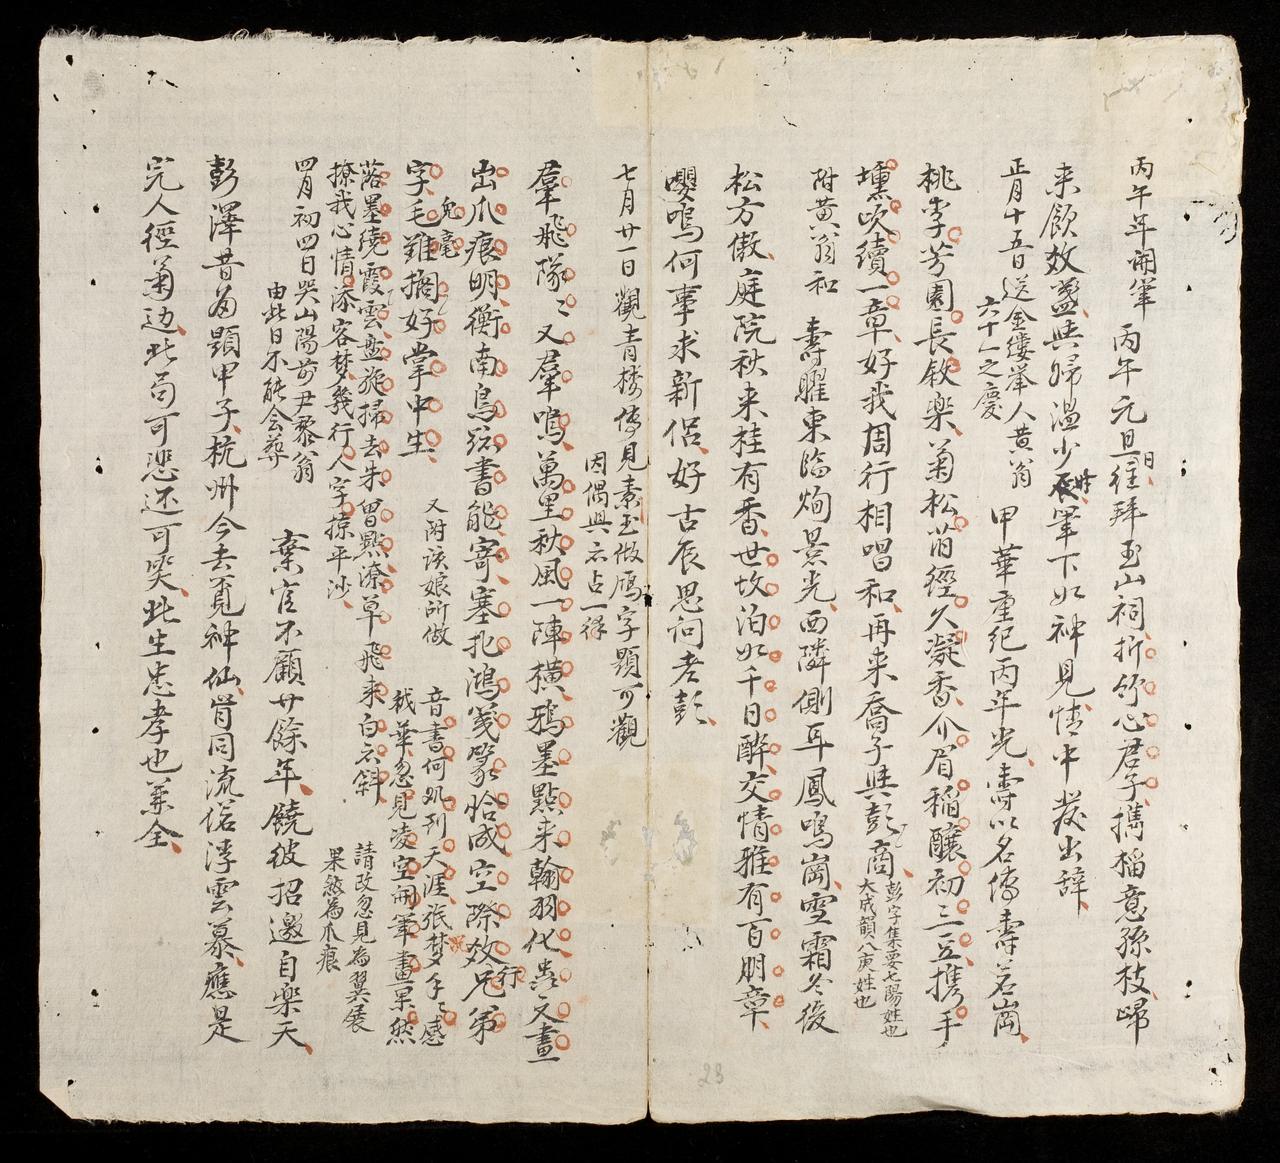 丙午年開筆　丙年元旦往拜玉山祠折竹心君子擕稲意孫枝歸
来飲效盞與婦溫少辰筆下如神見情中發出辞
正月十五日送金縷举人黄翁
六十一之慶
甲華重紀丙年光壽以名傳壽若崗
桃李芳園長敘楽菊松荫徑久凝香介眉稲釀初三五携手
壎吹續一章好我周行相唱和再来喬子與彭商
彭字集要七陽姓也
大成韻八庚姓也
附黄翁和　壽耀東臨炯景光西隣側耳鳳鳴崗雪霜冬後
松方傲庭院秋来桂有香世坎泊如千日醉交情雅有百朋章
嚶鳴何事求新侶好古辰思问老彭
七月廿一日觀青楼傳見素玉做鴈字題可觀
因偶興亦占一律
羣飛隊〻又羣鳴萬里秋風一陣横鴉墨點来翰羽化虫文畫
出爪痕明衡南鳥跡書能寄塞北鴻箋篆恰成空際效行兄弟
字毛難搦好掌中生
兔毫
又附该娘所做
音書何処列天涯張梦手〻感
越華忽見凌空開筆畫果然
落墨繞霞雲盤旋掃去朱曽點潦草飛来白亦斜
撩我心情添客梦幾行人字掠平沙
請改忽見為翼展
果然為爪痕
四月初四日哭山陽前尹黎翁
由此日不能会葬
棄官不顧廿餘年饒彼招邀自楽天
彭澤昔為題甲子杭州今去覓神仙肯同流俗浮雲慕應是
完人徑菊边此局可悲还可笑此生忠孝也兼全
28